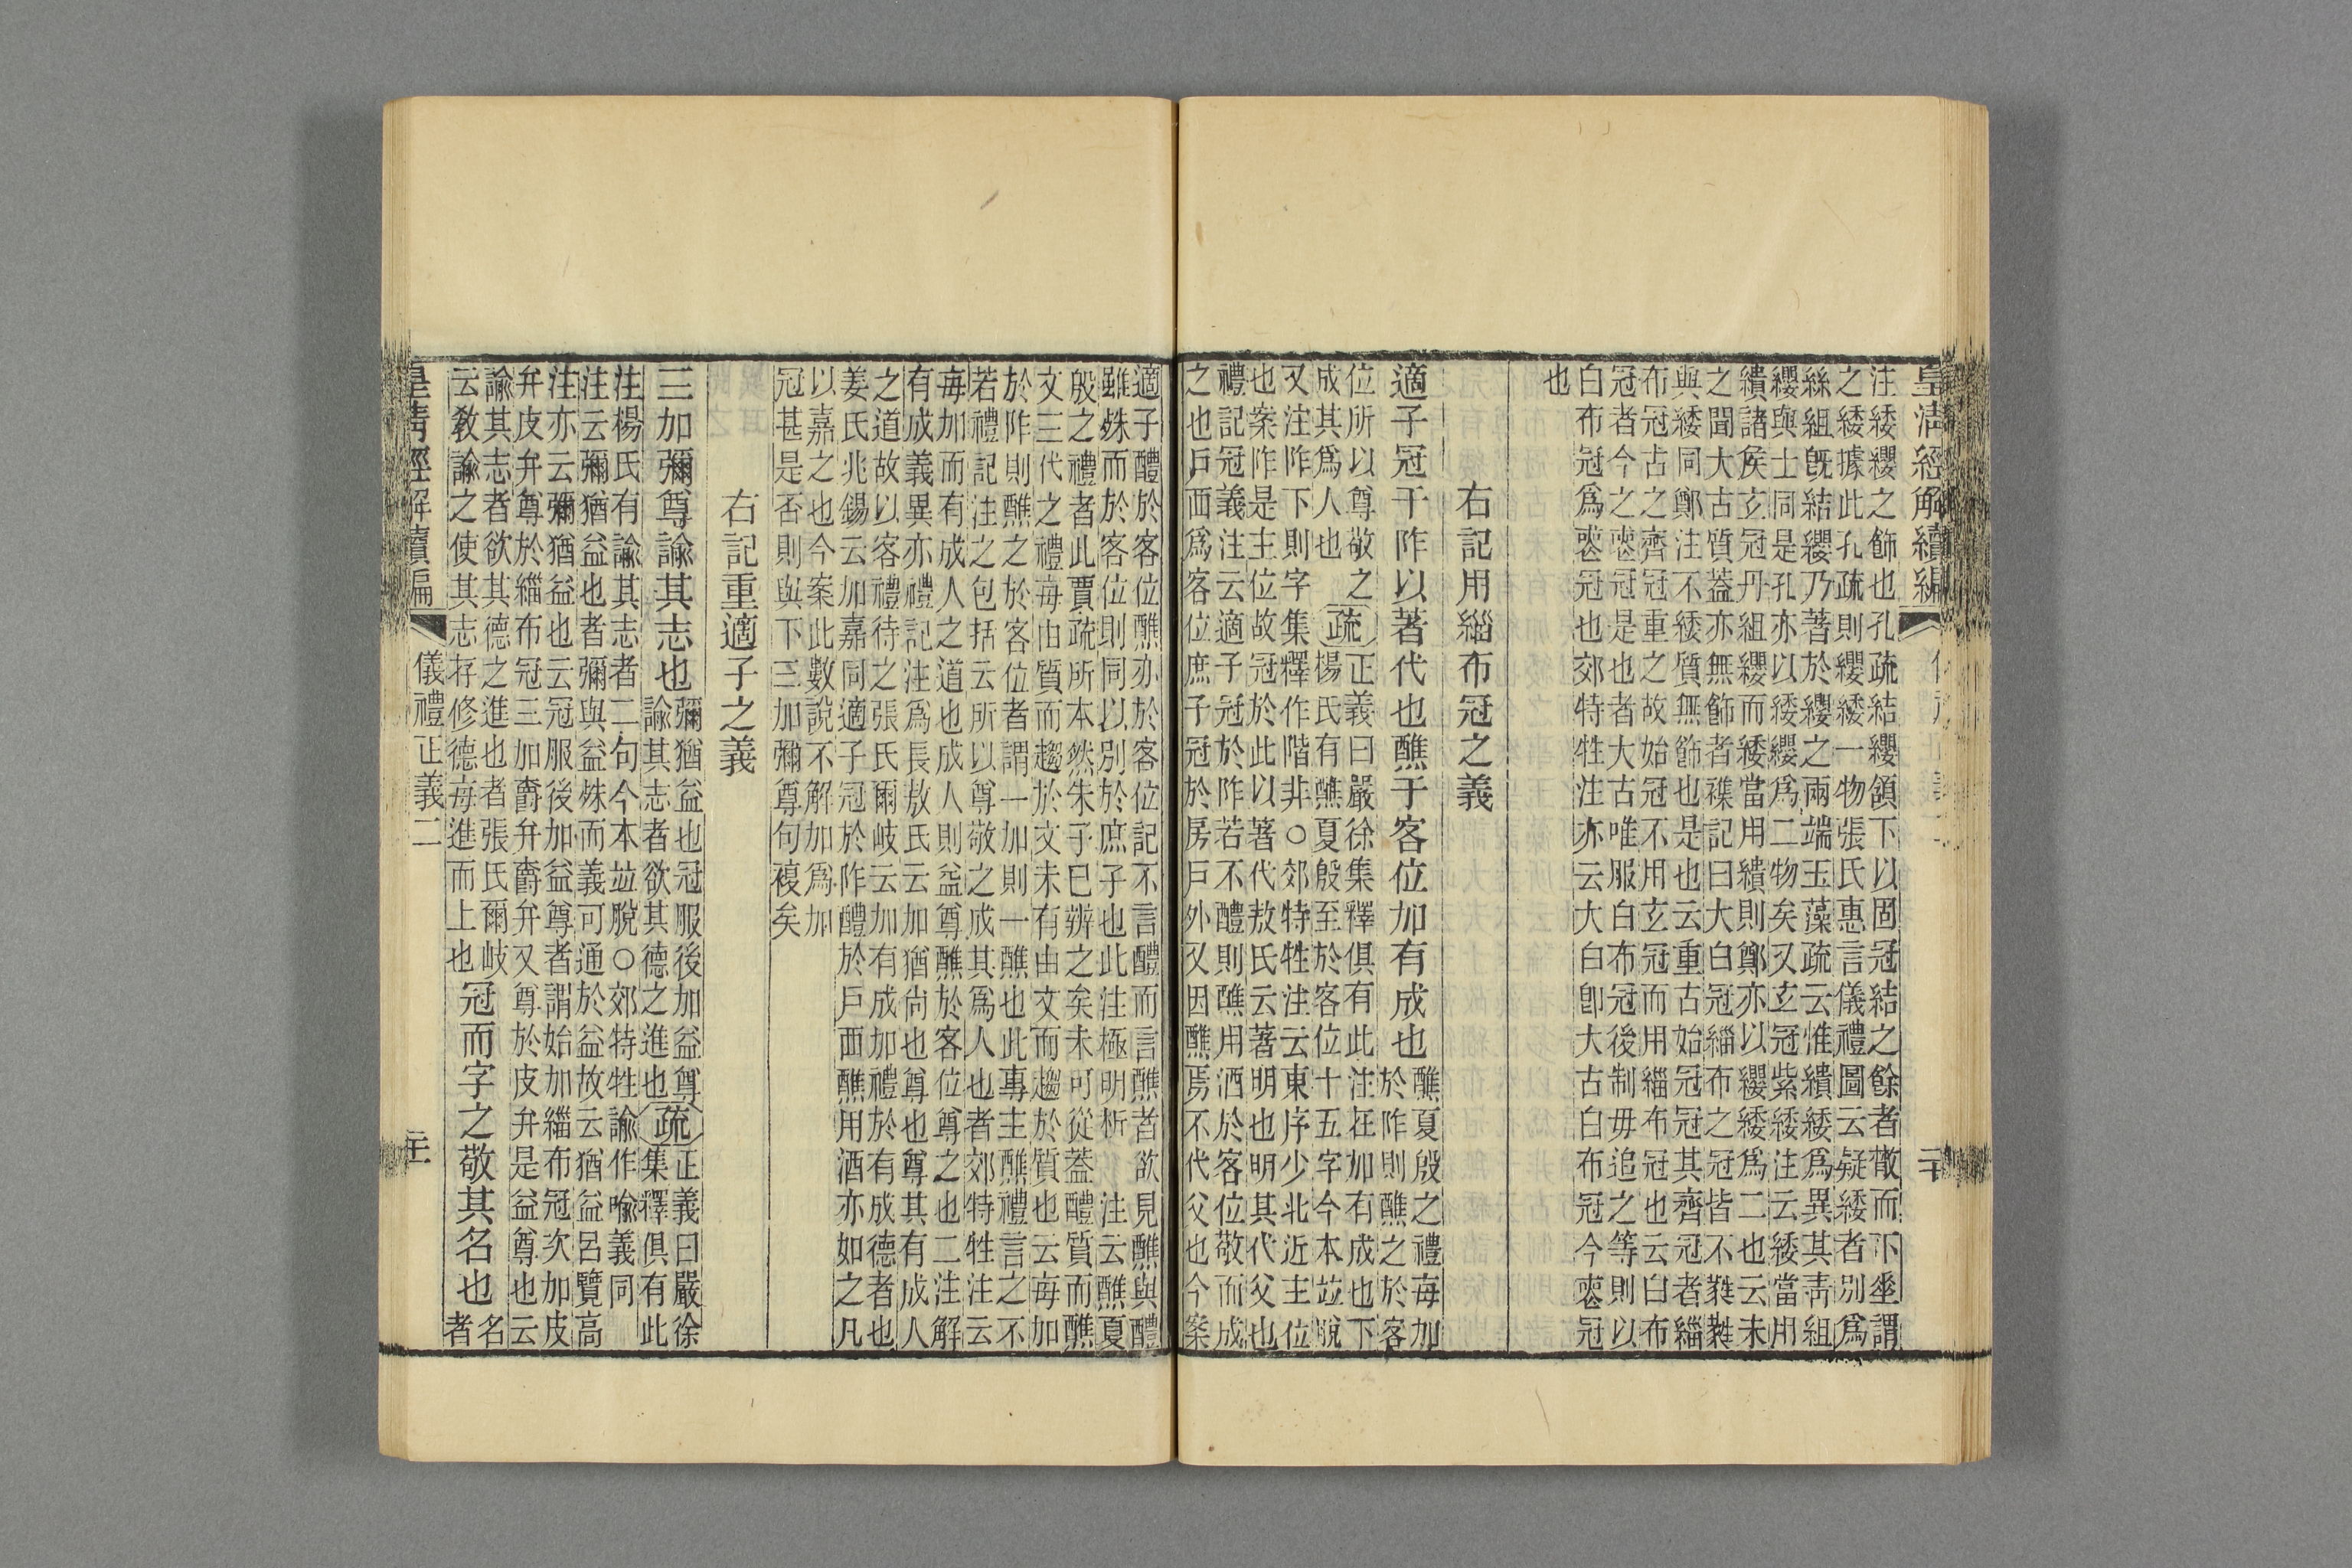 皇清經解續編
二十
注綏纓之飾也孔疏結纓頷下以固冠結之餘者散而下垂謂
之緌據此孔疏則纓緌一物張氏惠言儀禮圖云疑緌者別爲
絲組旣結纓乃著於纓之兩端玉藻疏云惟繢緌爲異其靑組
纓與士同是孔亦以緌纓爲二物矣又玄冠紫緌注云緌當用
繢諸矦玄冠丹組纓而緌當用繢則鄭亦以纓緌爲二也云未
之聞大古質葢亦無飾者襍記曰大白冠緇布之冠皆不蕤蕤
與緌同鄭注不緌質無飾也是也云重古始冠冠其齊冠者緇
布冠古之齊冠重之故始冠不用玄冠而用緇布冠也云白布
冠者今之喪冠是也者大古唯服白布冠後制毋追之等則以
白布冠爲喪冠也郊特牲注亦云大白卽大古白布冠今喪冠
也
右記用緇布冠之義
適子冠于阼以著代也醮于客位加有成也
醮夏殷之禮每加
於阼則醮之於客
位所以尊敬之
成其爲人也
疏
正義曰嚴徐集釋俱有此注在加有成也下
楊氏有醮夏殷至於客位十五字今本竝脫
又注阼下則字集釋作階非○郊特牲注云東序少北近主位
也案阼是主位故冠於此以著代敖氏云著明也明其代父也
禮記冠義注云適子冠於阼若不醴則醮用酒於客位敬而成
之也戶西爲客位庶子冠於房戶外又因醮焉不代父也今案
適子醴於客位醮亦於客位記不言醴而言醮者欲見醮與醴
雖殊而於客位則同以別於庶子也此注極明析 注云醮夏
殷之禮者此賈疏所本然朱子已辨之矣未可從葢醴質而醮
文三代之禮每由質而趨於文未有由文而趨於質也云每加
於阼則醮之於客位者謂一加則一醮也此專主醮禮言之不
若禮記注之包括云所以尊敬之成其爲人也者郊特牲注云
每加而有成人之道也成人則益尊醮於客位尊之也二注解
有成義異亦禮記注爲長敖氏云加猶尙也尊也尊其有成人
之道故以客禮待之張氏爾岐云加有成加禮於有成德者也
姜氏兆錫云加嘉同適子冠於阼醴於戶西醮用酒亦如之凡
以嘉之也今案此數說不解加爲加
冠甚是否則與下三加彌尊句複矣
右記重適子之義
三加彌尊諭其志也
彌猶益也冠服後加益尊
諭其志者欲其德之進也
疏
正義曰嚴徐
集釋俱有此
注楊氏有諭其志者二句今本竝脫○郊特牲諭作喩義同
注云彌猶益也者彌與益殊而義可通於益故云猶益呂覽高
注亦云彌猶益也云冠服後加益尊者謂始加緇布冠次加皮
弁皮弁尊於緇布冠三加爵弁爵弁又尊於皮弁是益尊也云
諭其志者欲其德之進也者張氏爾岐
云敎諭之使其志存修德每進而上也
冠而字之敬其名也
名
者
皇清經解續編
儀禮正義二
二十一